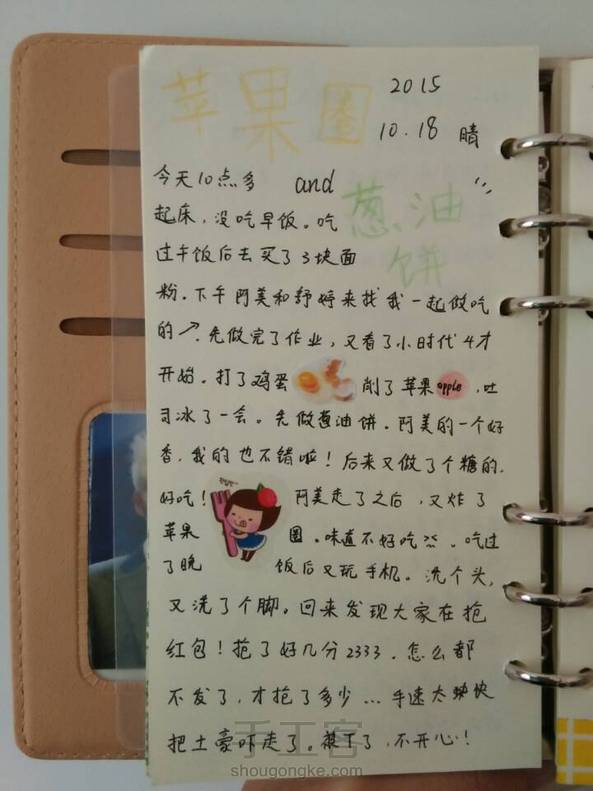 苹果圈
2015
10.18 晴
今天10点多 and
葱油
饼
起床，没吃早饭。吃
过午饭后去买了3块面
粉。下午阿美和舒婷来找我一起做吃
的↗。先做完了作业，又看了小时代4才
开始。打了鸡蛋 削了苹果apple，吐
司冰了一会。先做葱油饼。阿美的一个好
香，我的也不错啦！后来又做了个糖的。
好吃！ 阿美走了之后，又炸了
苹果 圈。味道不好吃。吃过
了晚 饭后又玩手机。洗个头，
又洗了个脚。回来发现大家在抢
红包！抢了好几分2333。怎么都
不发了，才抢了多少...手速太快
把土豪吓走了。了，不开心！
手工客
shougongke.com